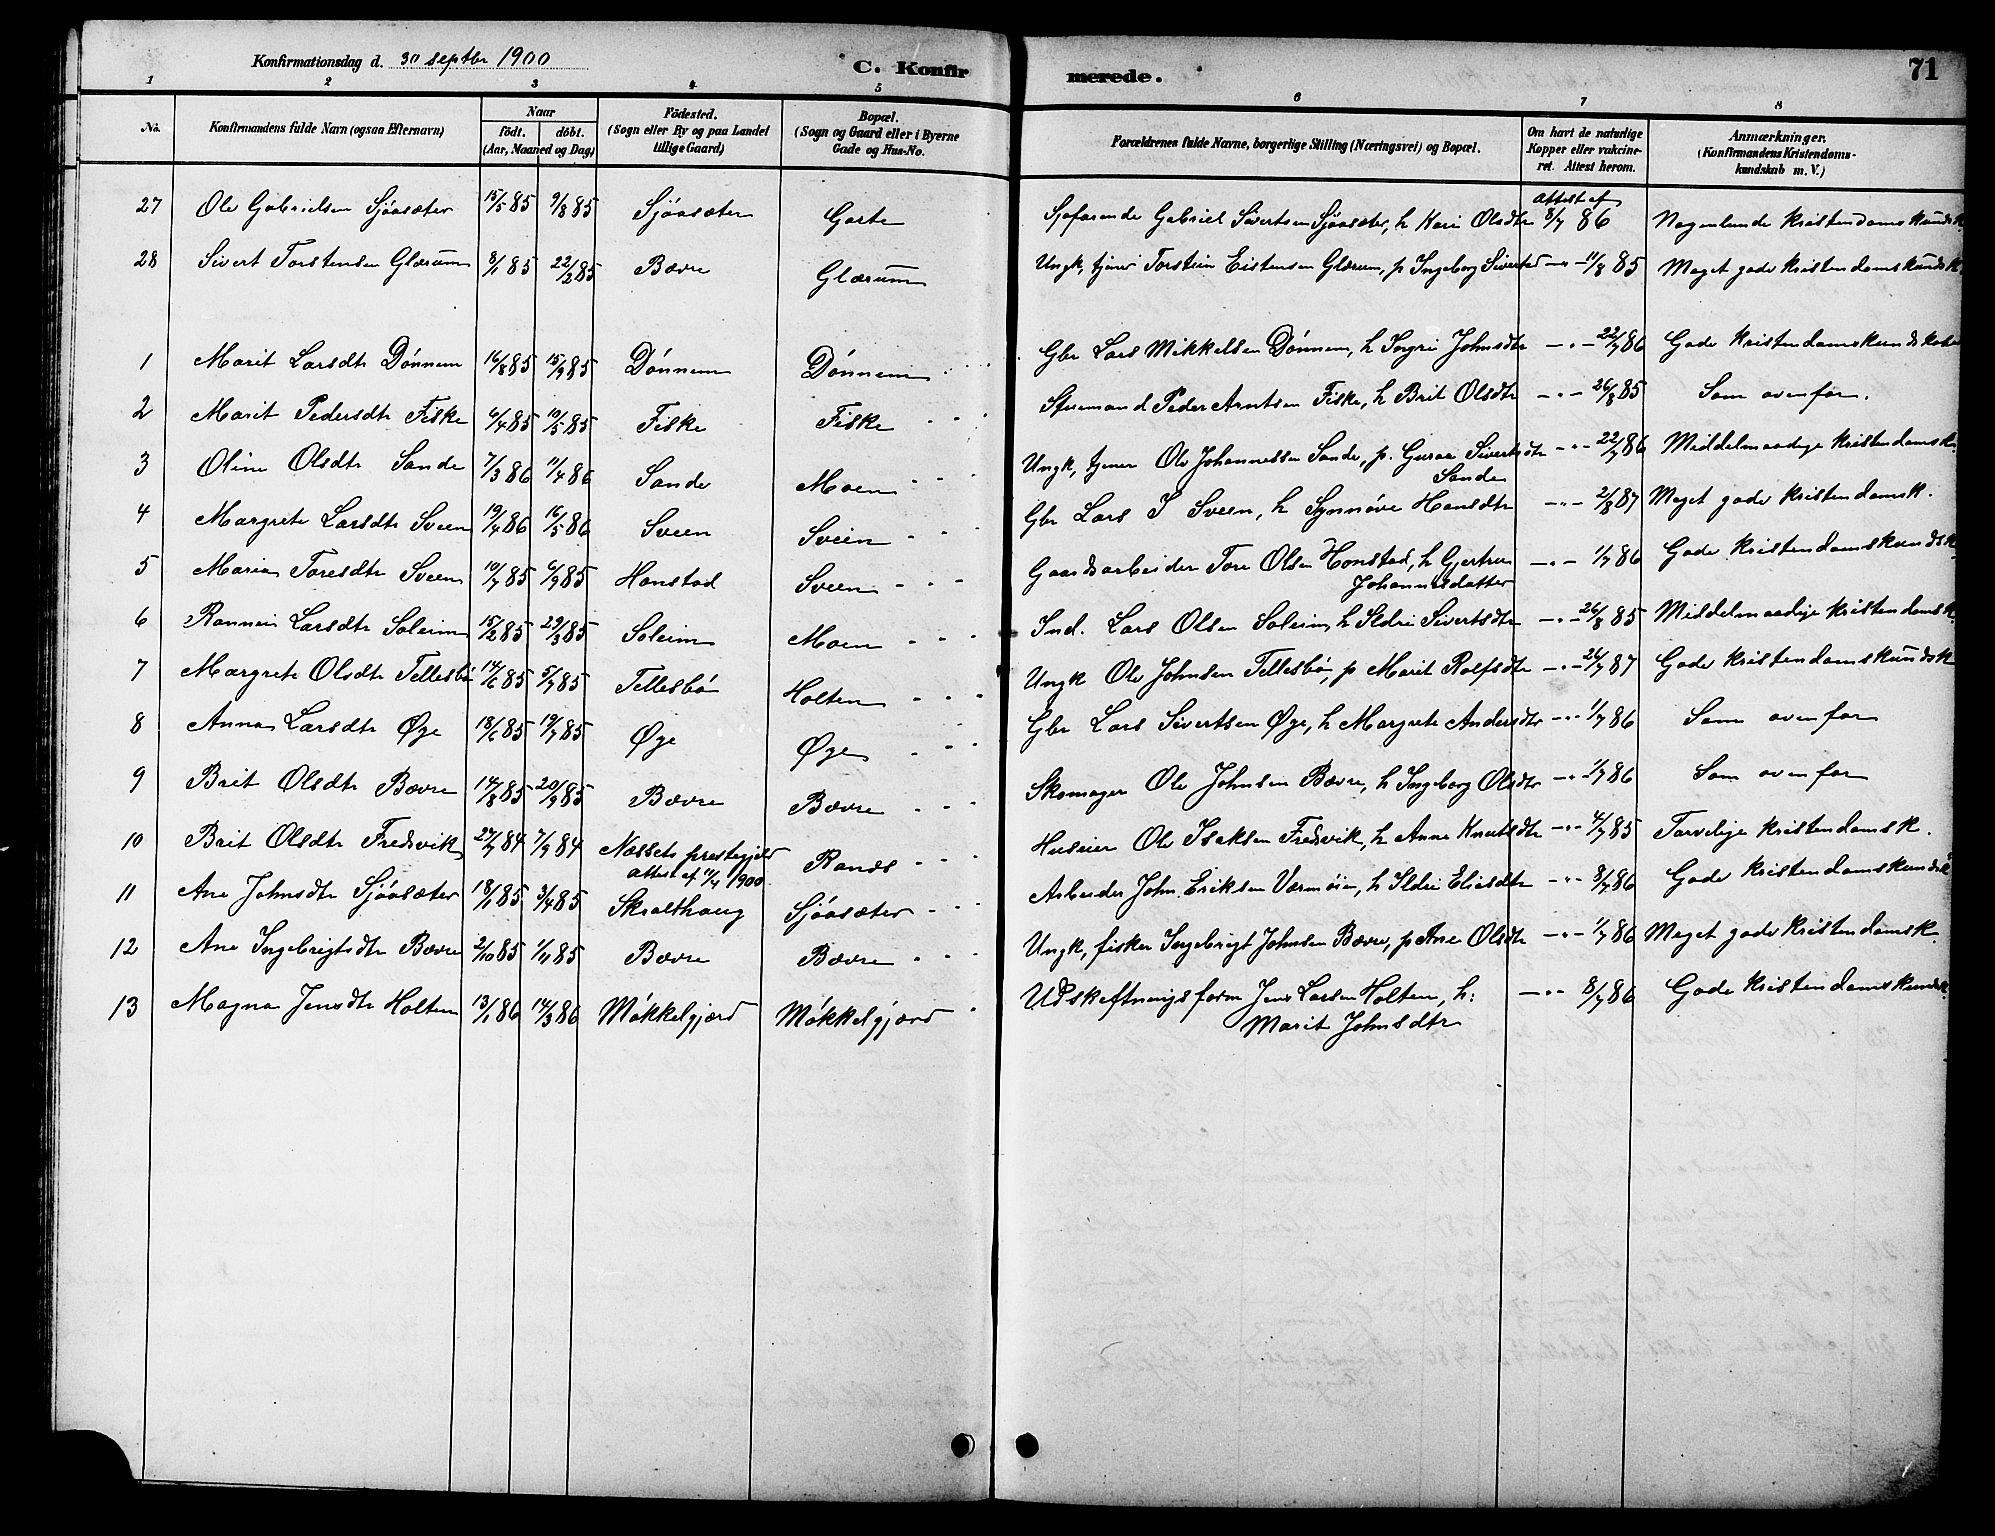 Konfirmationsdag d. 30 septbr 1900
C. Konfirmerede. 71
1 2 3 4 5 6 7 8
No. Konfirmandens fulde Navn (ogsaa Efternavn) Naar födt. döbt. (Aar, Maaned og Dag) Födested. (Sogn eller By og paa Landet tillige Gaard) Bopæl. (Sogn og Gaard eller i Byerne Gade og Hus-No. Forældrenes fulde Navne, borgerlige Stilling (Næringsvei) og Bopæl. Om havt de naturlige Kopper eller vakcineret. Attest herom. Anmærkninger. (Konfirmandens Kristendomskundskab m. V.)
27 Ole Gabrielsen Sjöasæter 15/5 85 9/8 85 Sjöasæter Garte Sjöfarende Gabriel Sivertsen Sjöasæter, h Kari Olsdtr attest af 8/7 86 Nogenlunde kristendomskundsk
28 Sivert Torstensen Glærum 8/1 85 22/2 85 Bævre Glærum Ungk, tjener Torstein Eistensen Glærum, p Ingeborg Sivertsd —"— 11/8 85 Meget gode kristendomskundsk
1 Marit Larsdtr Dönnem 16/8 85 15/9 85 Dönnem Dönnem Gbr Lars Mikkelsen Dönnem, h Sygri Johnsdtr —"— 22/7 86 Gode kristendomskundskaber
2 Marit Pedersdtr Fiske 6/4 85 10/5 85 Fiske Fiske Styrmand Peder Arntsen Fiske, h Brit Olsdtr —"— 26/8 85 Som ovenfor.
3 Oline Olsdtr Sande 7/3 86 11/4 86 Sande Moen Ungk, tjener Ole Johannessen Sande, p. Guroe Sivertsdtr Sande —"— 22/7 86 Middelmaadige kristendomsk.
4 Margrete Larsdtr Sveen 19/4 86 16/5 86 Sveen Sveen Gbr Lars I Sveen, h Synnöve Hansdtr —"— 2/8 87 Meget gode kristendomsk.
5 Maria Toresdtr Sveen 10/7 85 6/9 85 Honstad Sveen Gaardsarbeider Tore Olsen Honstad, h Gjertrun Johannesdatter —"— 1/7 86 Gode kristendomskundsk
6 Rannei Larsdtr Soleim 15/2 85 29/3 85 Soleim Moen Ind. Lars Olsen Soleim, h Ildri Sivertsdtr —"— 26/8 85 Middelmaadige kristendomsk
7 Margrete Olsdtr Tellesbö 14/6 85 5/7 85 Tellesbö Holten Ungk Ole Johnsen Tellesbö, p Marit Rolfsdtr —"— 26/7 87 Gode kristendomskundsk
8 Anna Larsdtr Øye 18/6 85 19/7 85 Øye Øye Gbr Lars Sivertsen Øye, h Margrete Andersdtr —"— 1/7 86 Som ovenfor
9 Brit Olsdtr Bævre 14/8 85 20/9 85 Bævre Bævre Skomager Ole Johnsen Bævre, h Ingeborg Olsdtr —"— 1/7 86 Som ovenfor
10 Brit Olsdtr Fredsvik 27/7 84 7/9 84 Næssets prestegjeld attest af 11/4 1900 Ranes Huseier Ole Isaksen Fredsvik, h Anne Knutsdtr —"— 4/7 85 Tarvelige kristendomsk.
11 Ane Johnsdtr Sjöasæter 18/1 85 3/4 85 Skralthaug Sjöasæter Arbeider John Eriksen Værmöien, h Ildri Eliasdtr —"— 8/7 86 Gode kristendomskundsk
12 Ane Ingebrigtsdtr Bævre 2/10 85 1/11 85 Bævre Bævre Ungk, fisker Ingebrigt Johnsen Bævre, p Ane Olsdtr —"— 1/7 86 Meget gode kristendomsk.
13 Magna Jensdtr Holten 13/1 86 14/3 86 Mökkelgjerd Mökkelgjerd Udskiftningsform Jens Larsen Holten, h: Marit Johnsdtr —"— 8/7 86 Gode kristendomskundsk.